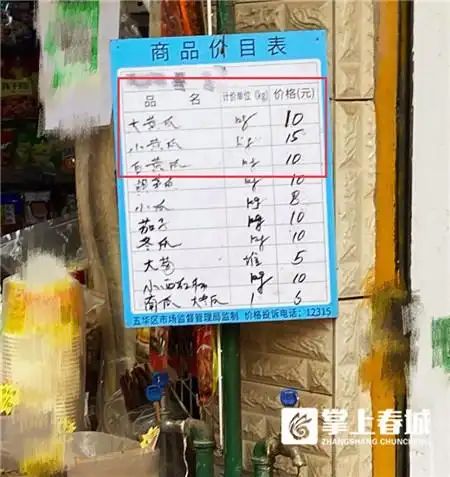 商品价目表
品 名 计价单位(kg) 价格(元)
大黄瓜 kg 10
小黄瓜 kg 15
白黄瓜 kg 10
kg 10
小瓜 kg 8
茄子 kg 10
冬瓜 kg 10
大葱 堆 5
小西红柿 kg 10
南瓜 1
五华区市场监督管理局监制 价格投诉电话:12315
掌上春城
ZHANGSHANG CHUNCHENG